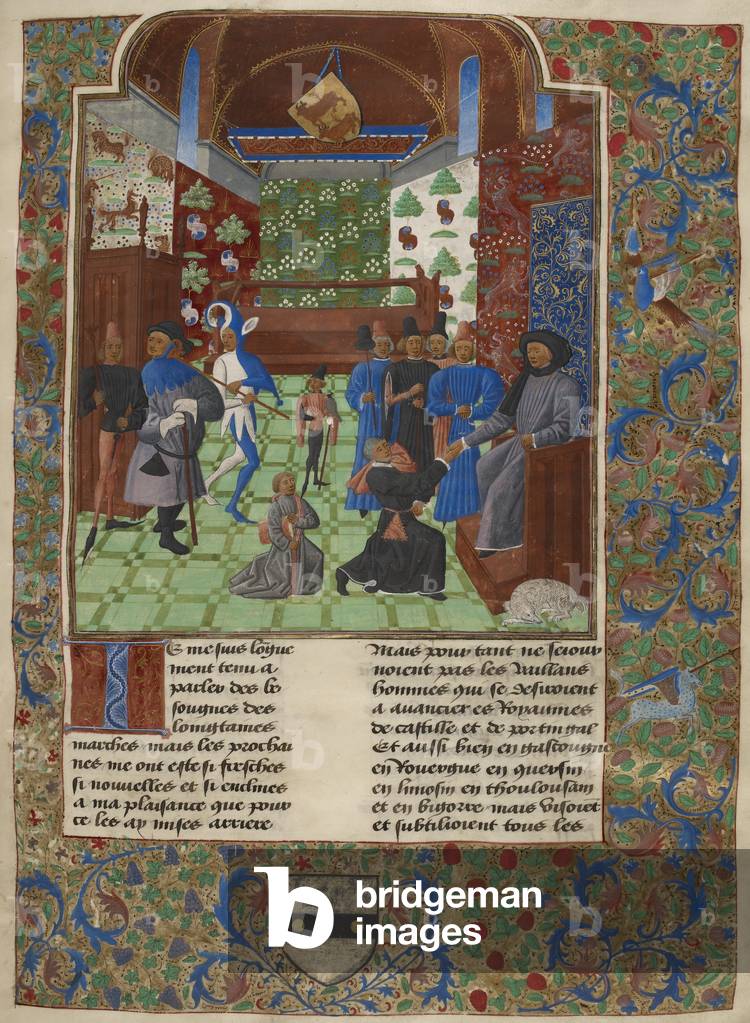 Je me suis longue
ment tenu a
parler des be
songnes des
longtaines
marches mais les prochai
nes me ont este si fresches
si nouvelles et si enclines
a ma plaisance que pour
ce les ay mises arriere
Mais pour tant ne seiour
noient pas les vaillans
hommes qui se desiroient
a auancier es royaumes
de castille et de portingal
Et aussi bien en gascongne
en Rouergue en quersin
en limosin en thoulousain
et en bigorre mais visoient
et subtilioient tous les
b bridgeman
images